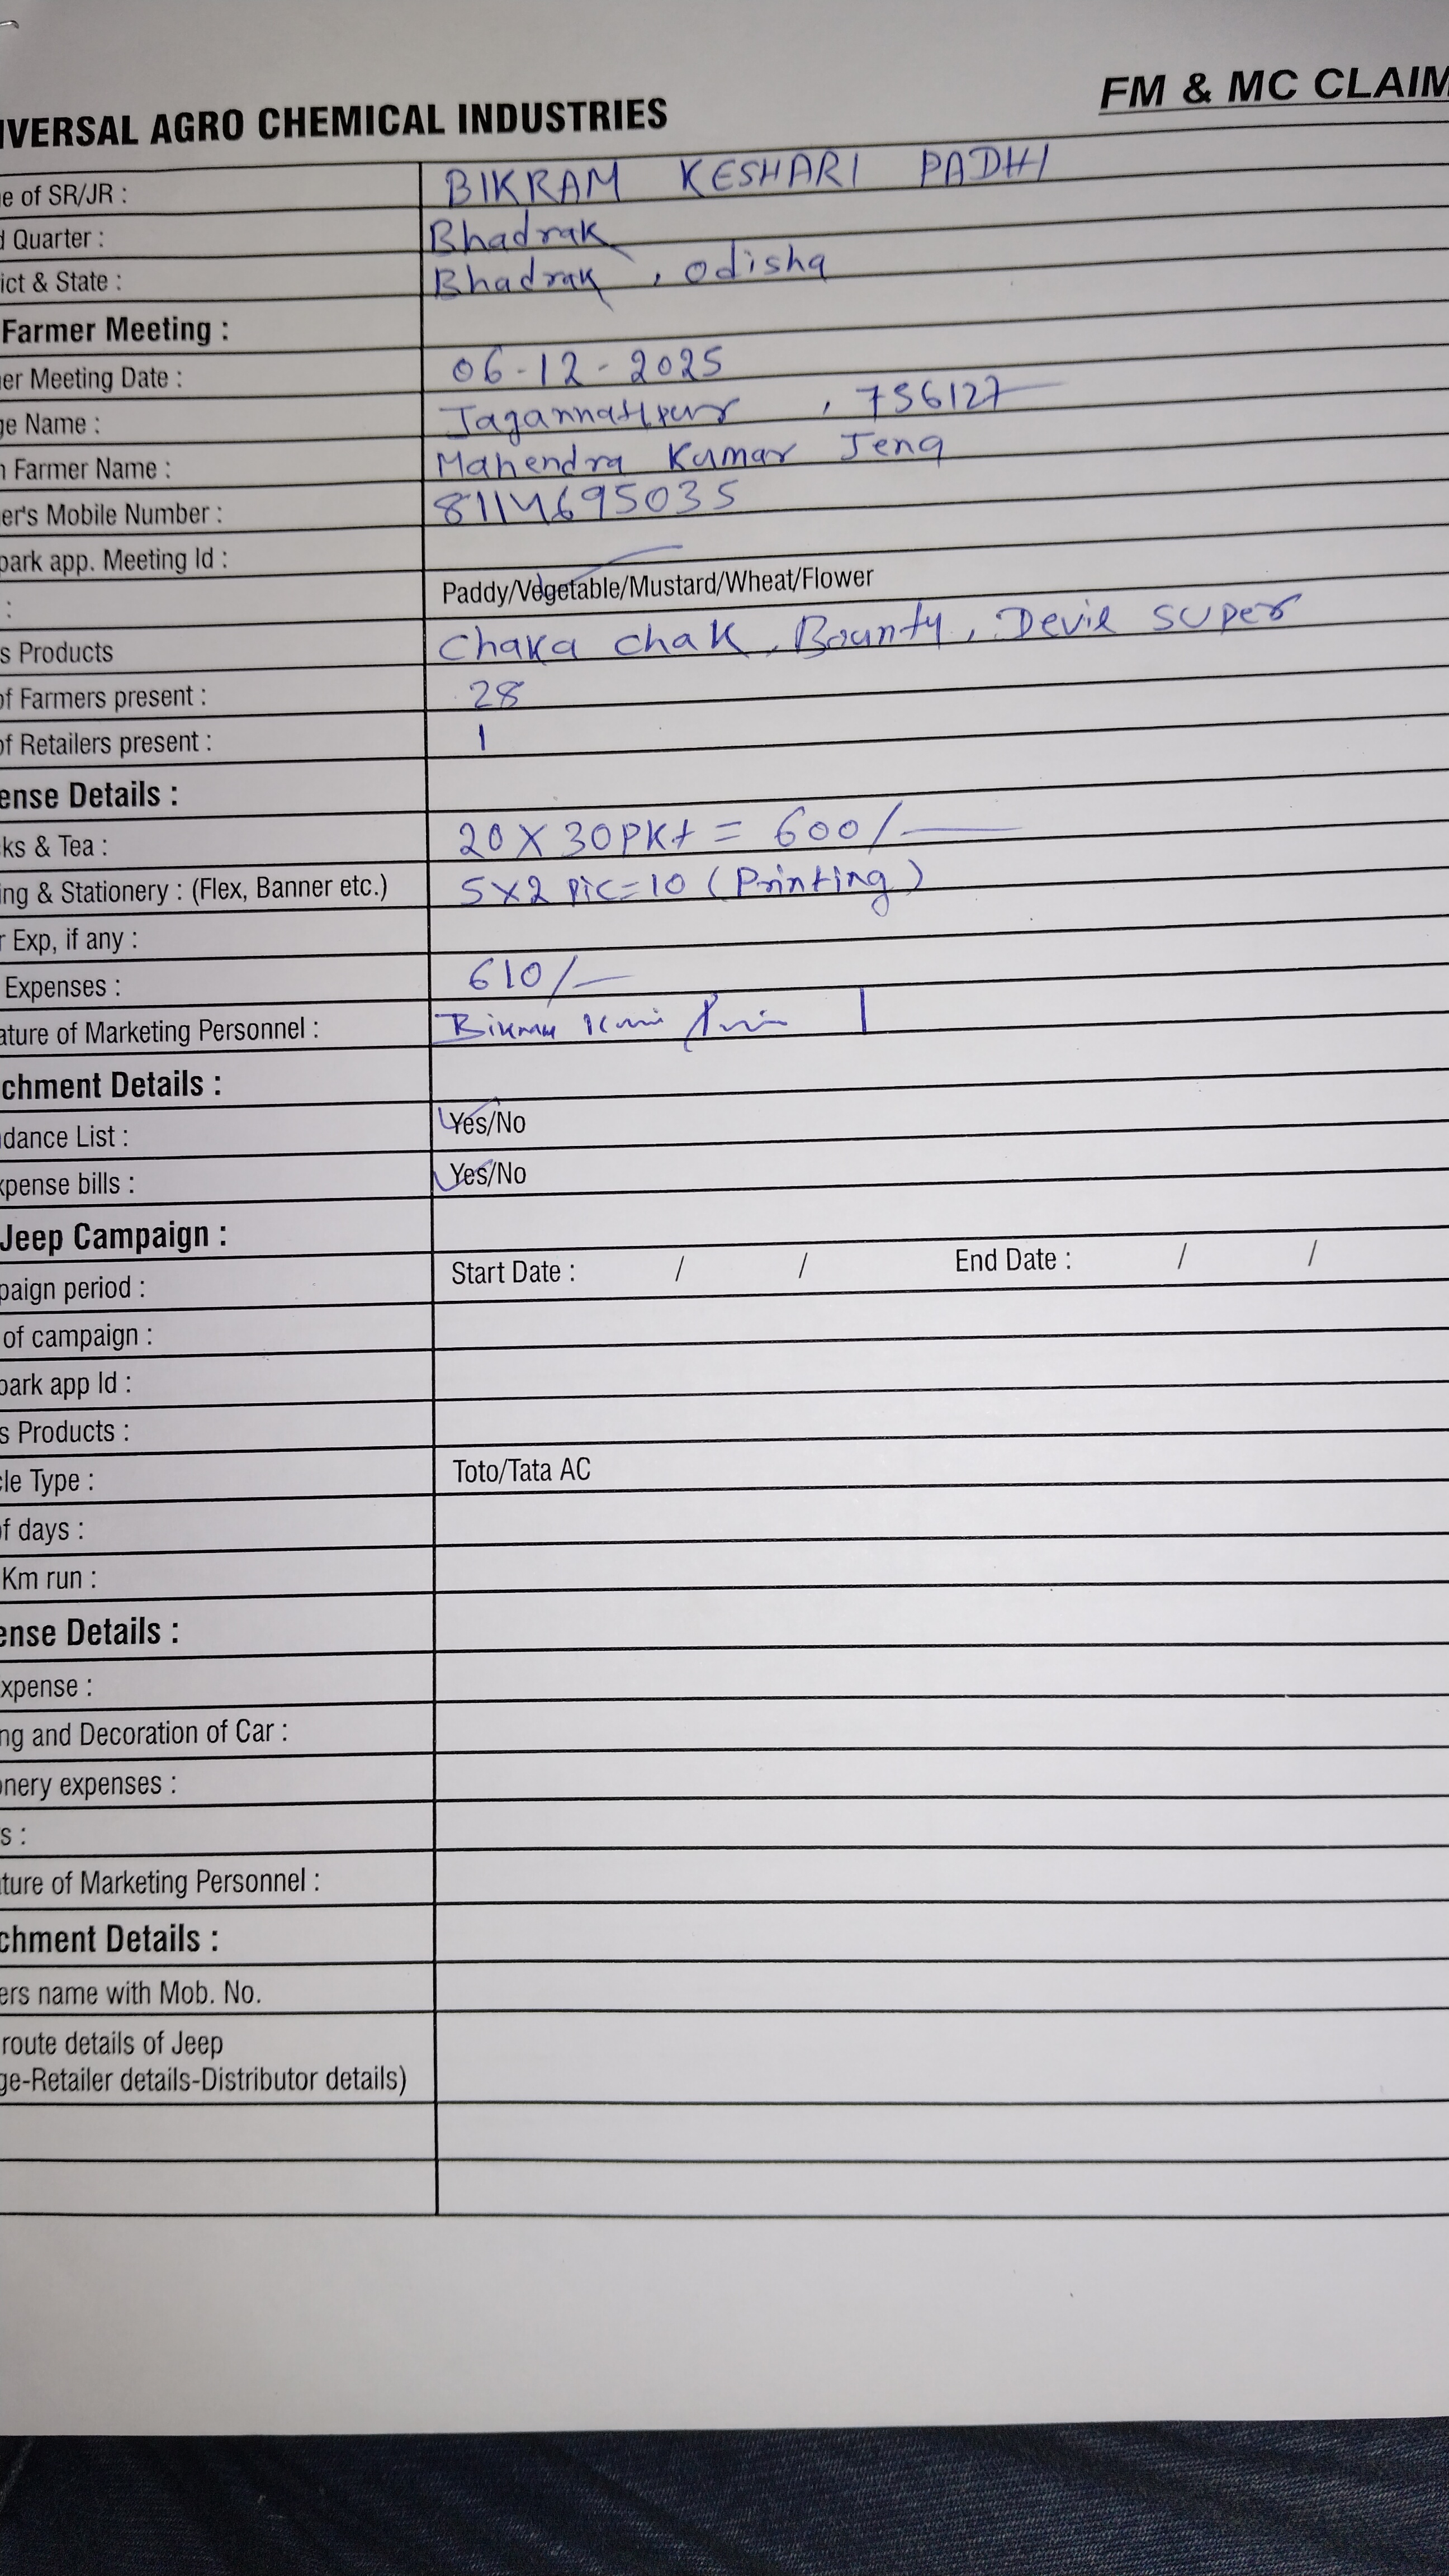 IVERSAL AGRO CHEMICAL INDUSTRIES
FM & MC CLAIM
e of SR/JR : BIKRAM KESHARI PADHI
d Quarter : Bhadrak
ict & State : Bhadrak, odisha
Farmer Meeting :
er Meeting Date : 06-12-2025
ge Name : Jagannathpur, 756127
n Farmer Name : Mahendra Kumar Jena
er's Mobile Number : 8114695035
park app. Meeting Id :
: Paddy/Vegetable/Mustard/Wheat/Flower
s Products Chaka chak, Bounty, Devil super
of Farmers present : 28
of Retailers present : 1
ense Details :
ks & Tea : 20 X 30 PKt = 600/-
ing & Stationery : (Flex, Banner etc.) 5x2 pic=10 (Printing)
r Exp, if any :
Expenses : 610/-
ature of Marketing Personnel : Bikram
chment Details :
dance List : Yes/No
xpense bills : Yes/No
Jeep Campaign :
paign period : Start Date : / / End Date : / /
of campaign :
park app Id :
s Products :
cle Type : Toto/Tata AC
of days :
Km run :
ense Details :
xpense :
ng and Decoration of Car :
onery expenses :
s :
ture of Marketing Personnel :
chment Details :
ers name with Mob. No.
route details of Jeep
ge-Retailer details-Distributor details)